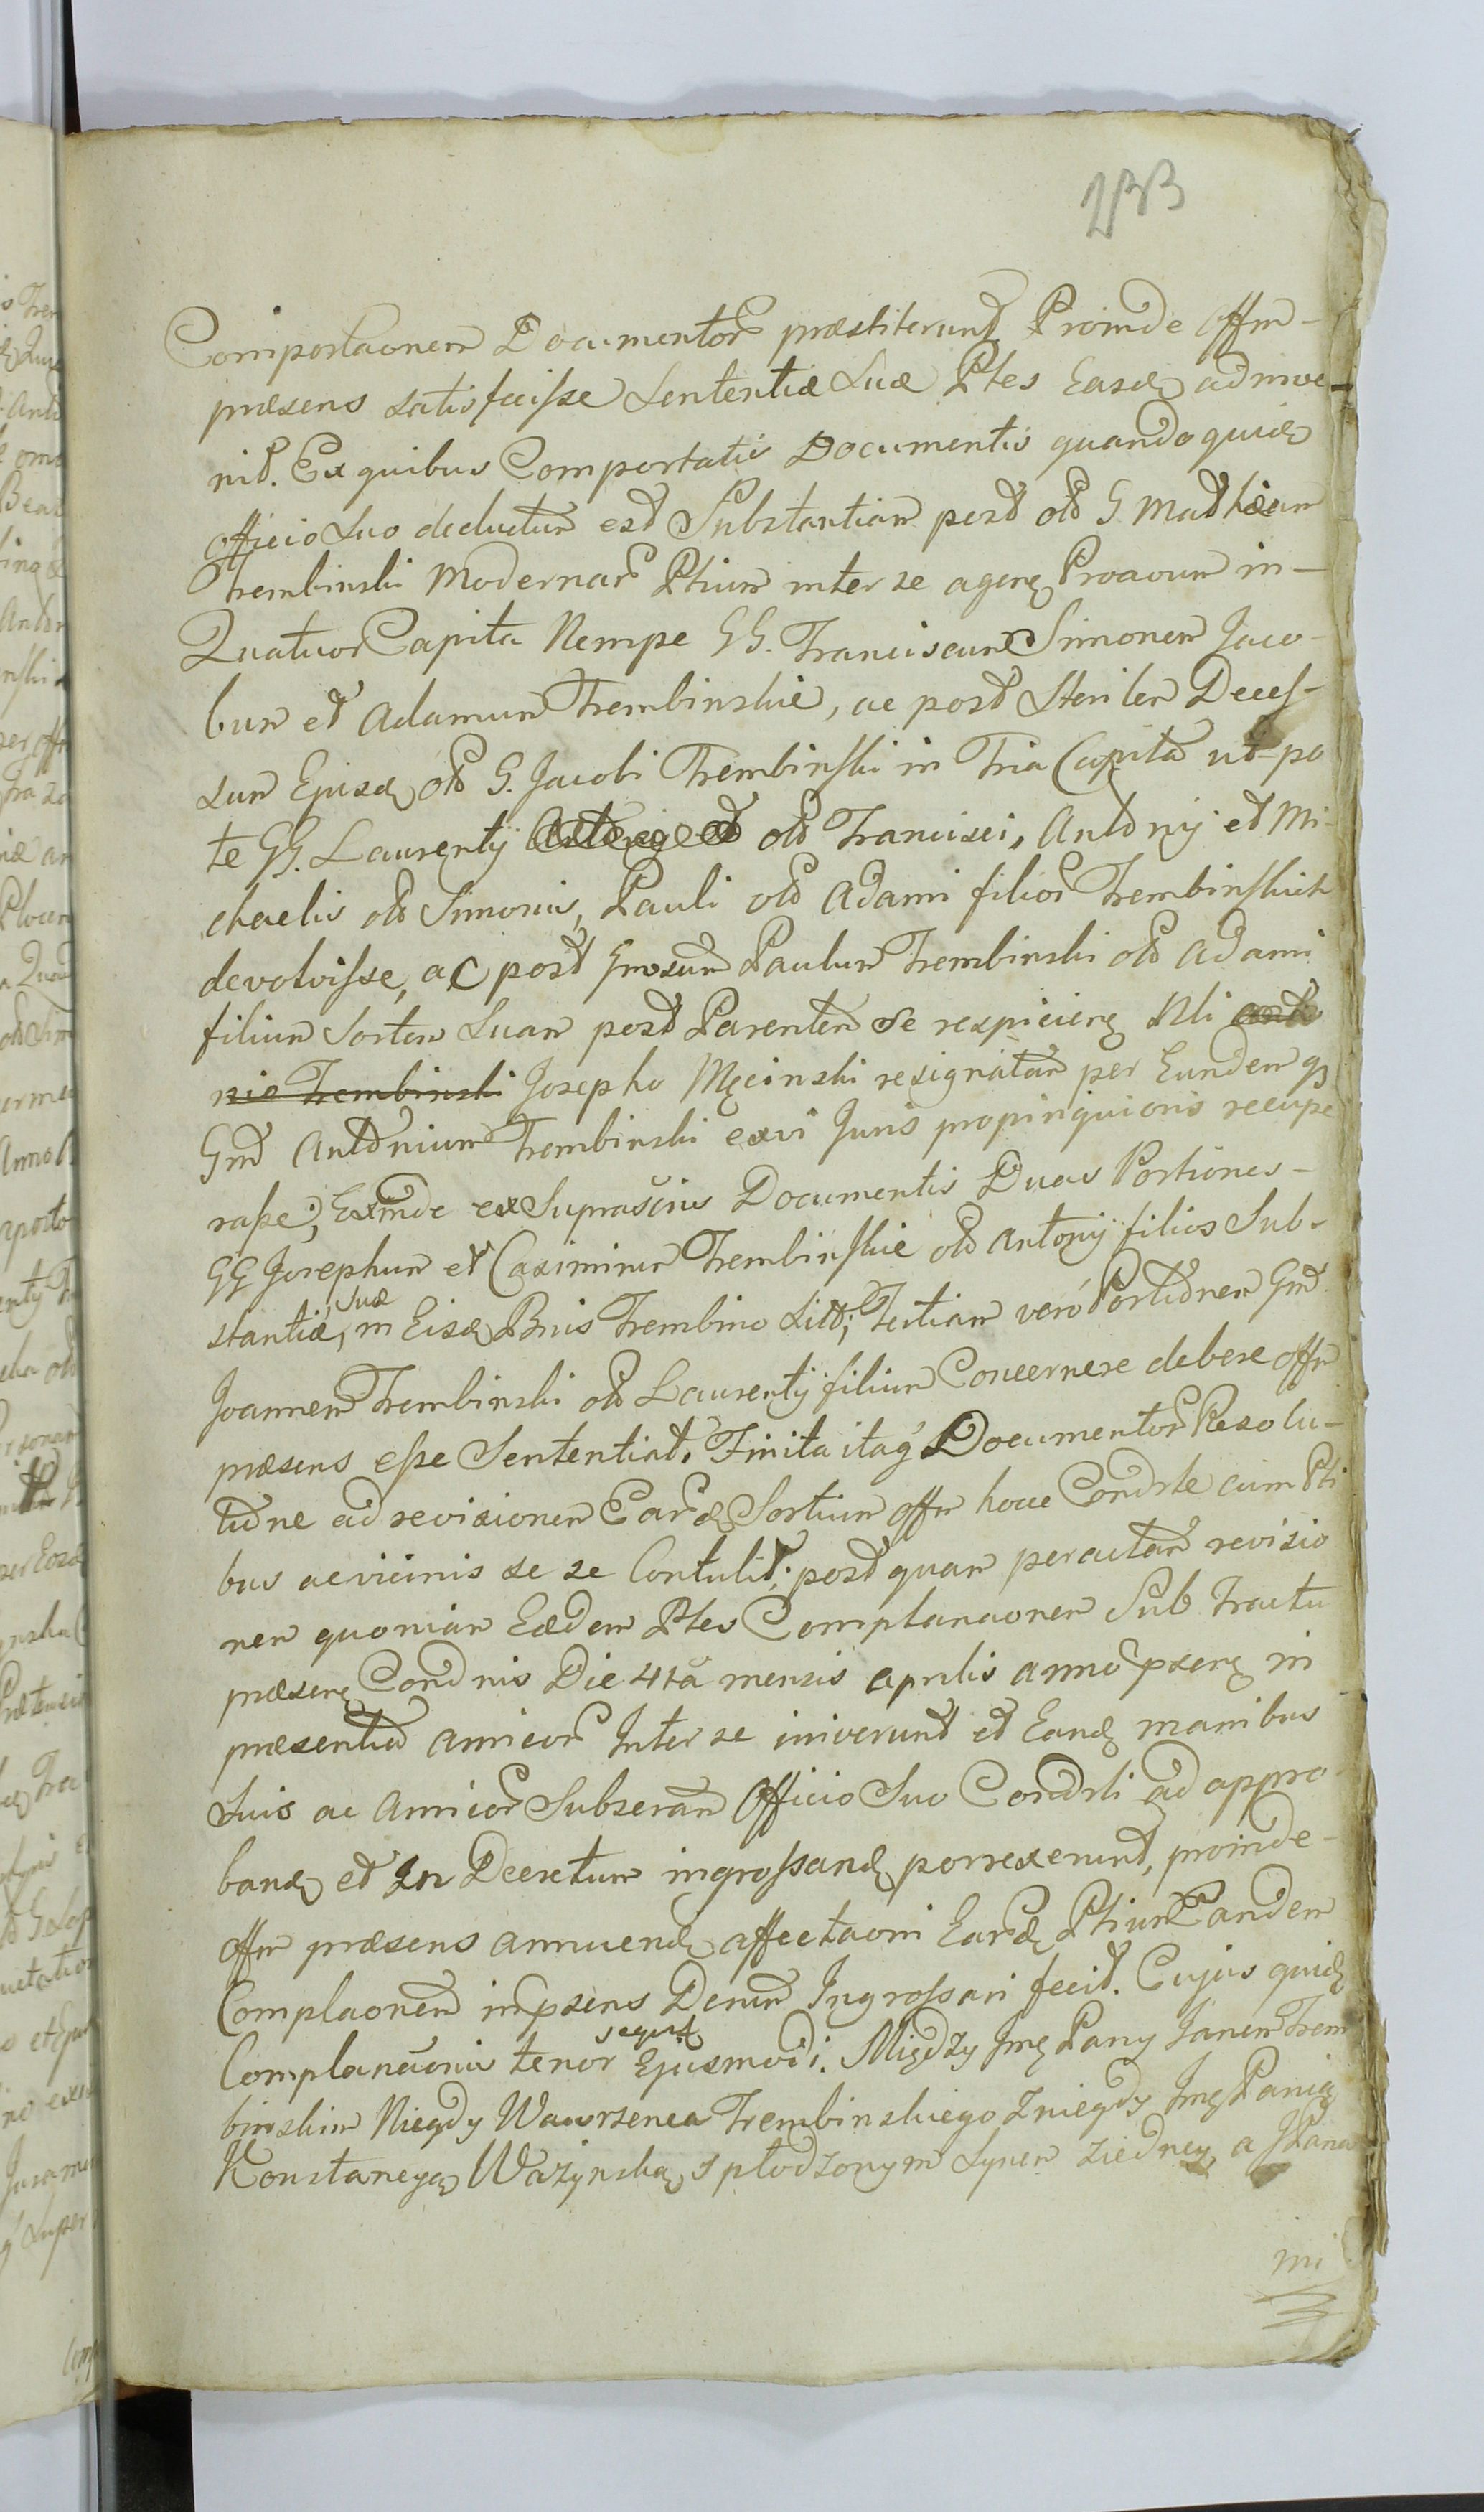 233
Comportaonem Documentor praestiterunt Proinde offm-
praesens satisfecisse Sententiae Suae Ptes Easd adinve-
nit. Ex quibus Comportatis Documentis quandoquid
officio Suo deductum est Substantiam post olt G. Mattheum
Trembinski Modernar Ptium inter se agen Proavum in-
Quatuor Capita Nempe GG. Franciscum Simonem Jaco-
bum et Adamum Trembinskie, ac post Sterilem Deces-
sum Ejusd olt G. Jacobi Trembinski in Tria Capita ut-po
te GG. Laurentij olt Francisci, Antonij et Mi-
chaelis olt Simonis, Pauli olt Adami filior Trembinskich
devolvisse, ac post Gnosum Paulum Trembinski olt Adami
filium Sortem Suam post Parentem Se respicien Nli anto
nio Trembinski Josepho Męcinski resignatam per Eundem q
Gnd Antonium Trembinski ex vi Juris propinquioris recupe
rasse, Exinde ex Suprascius Documentis Duas Portiones-
GG Josephum et Casimirum Trembinskie olt Antonij filios Sub-
stantiae, Suae in Eisd Bnis Trembino Sitt; Tertiam vero Portionem Gnd
Joannem Trembinski olt Laurentij filium Concernere debere offm
praesens esse Sententiat. Finita itaq Documentor Resolu-
tione ad revisionem Eard Sortium offm hocce Condrle cum Pti
bus ac vicinis se se Contulit; post quam peractam revisio
nem quoniam Eaedem Ptes Complanaonem Sub Tractu
praesen Condnis Die 4ta mensis aprilis anno psen in
praesentia amicor Inter se iniverunt et Eand manibus
Suis ac Amicor Subscram Officio Suo Condrli ad appro-
band et In Decretum ingrossand porrexerunt, proinde-
offm praesens annuend affectaoni Eard Ptium Eandem
Complaonem in psens Dcrum Ingrossari fecit. Cujus quid
Complanaonis tenor sequit Ejusmodi. Między Jmę Pany Janem Trem
binskim Niegdy Wawrzenca Trembinskiego zniegdy Jmę Panią
Konstancyą Ważynską spłodzonym Synem ziedney, a JPana
mi